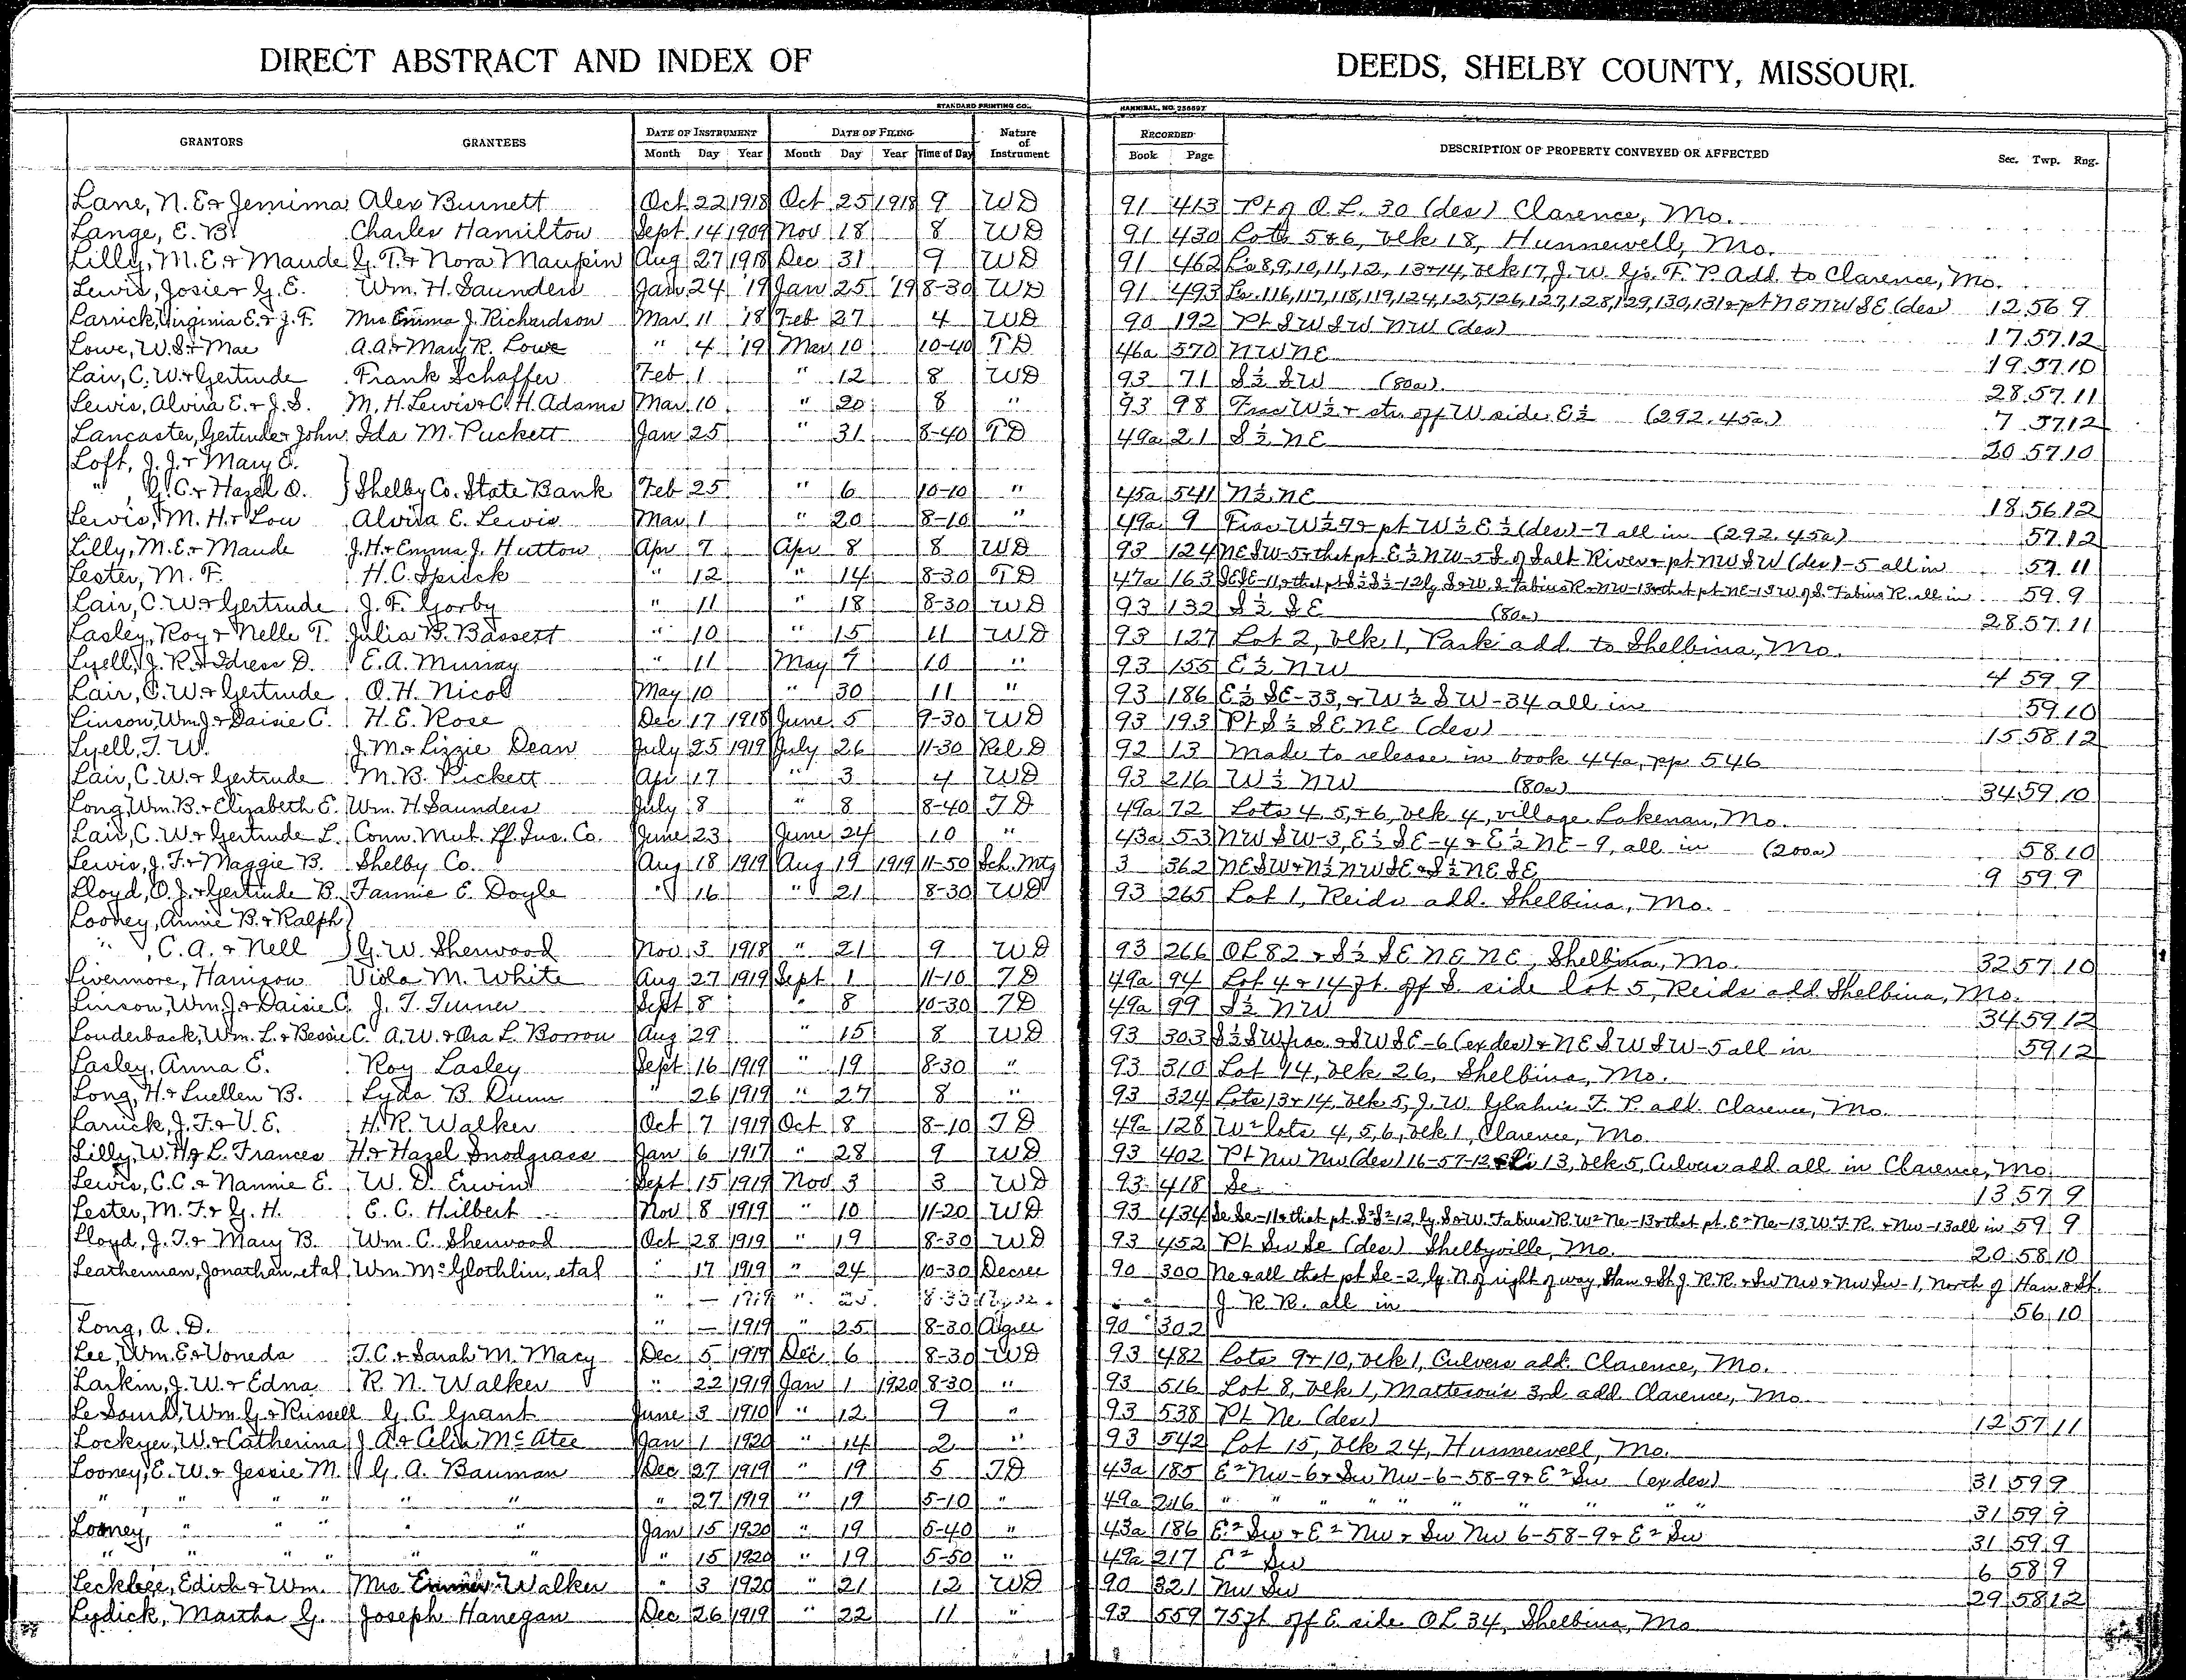 DIRECT ABSTRACT AND INDEX OF DEEDS, SHELBY COUNTY, MISSOURI.
STANDARD PRINTING CO., HANNIBAL, NO. 256697
GRANTORS GRANTEES DATE OF INSTRUMENT DATE OF FILING Nature of Instrument RECORDED DESCRIPTION OF PROPERTY CONVEYED OR AFFECTED Sec. Twp. Rng.
Month Day Year Month Day Year Time of Day Book Page
Lane, N. E. & Jemima Alex Burnett Oct 22 1918 Oct 25 1918 9 WD 91 413 Pt of O.L. 30 (des) Clarence, Mo.
Lange, E. B. Charles Hamilton Sept 14 1909 Nov 18 8 WD 91 430 Lots 5&6, blk 18, Hunnewell, Mo.
Lilly, M. E. & Maude G. T. & Nora Maupin Aug 27 1918 Dec 31 9 WD 91 462 L's 8,9,10,11,12, 13&14, blk 17, J. W. G's. F. P. Add. to Clarence, Mo.
Lewis, Josie & G. E. Wm. H. Saunders Jan 24 '19 Jan 25 '19 8-30 WD 91 493 Ls. 116,117,118,119,124,125,126,127,128,129,130,131 & pt NE NW SE (des) 12 56 9
Larrick, Virginia E. & J. F. Mrs Emma J. Richardson Mar 11 '18 Feb 27 4 WD 90 192 Pt SW SW NW (des) 17 57 12
Lowe, W. S. & Mae A. A. & Mary R. Lowe " 4 '19 Mar 10 10-40 TD 46a 570 NW NE 19 57 10
Lair, C. W. & Gertrude Frank Schaffer Feb 1 " 12 8 WD 93 71 S½ SW (80a) 28 57 11
Lewis, Alvira E. & J. S. M. H. Lewis & C. H. Adams Mar 10 " 20 8 " 93 98 Frac W½ & str. off W side E½ (292.45a) 7 57 12
Lancaster, Gertrude & John Ida M. Puckett Jan 25 " 31 8-40 TD 49a 21 S½ NE 20 57 10
Loft, J. J. & Mary E.
" , G. C. & Hazel O. } Shelby Co. State Bank Feb 25 " 6 10-10 " 45a 541 N½ NE 18 56 12
Lewis, M. H. & Lou Alvira E. Lewis Mar 1 " 20 8-10 " 49a 9 Frac W½ 7 & pt W½ E½ (des) - 7 all in (292.45a) 57 12
Lilly, M. E. & Maude J. H. & Emma J. Hutton Apr 7 Apr 8 8 WD 93 124 NE SW-5 & that pt. E½ NW-5 S. of Salt River & pt NW SW (des) - 5 all in 57 11
Lester, M. F. H. C. Spieck " 12 " 14 8-30 TD 47a 163 SE SE-11 & that pt S½ S½-12 ly S & W. S. Fabius R & NW-13 & that pt NE-13 W of S. Fabius R. all in 59 9
Lair, C. W. & Gertrude J. F. Gorby " 11 " 18 8-30 WD 93 132 S½ SE (80a) 28 57 11
Lasley, Roy & Nelle T. Julia B. Bassett " 10 " 15 11 WD 93 127 Lot 2, blk 1, Park add. to Shelbina, Mo.
Lyell, J. R. & Idress D. E. A. Murray " 11 May 7 10 " 93 155 E½ NW 4 59 9
Lair, C. W. & Gertrude O. H. Nicol May 10 " 30 11 " 93 186 E½ SE-33, & W½ SW-34 all in 59 10
Linson, Wm. J. & Daisie C. H. E. Rose Dec 17 1918 June 5 9-30 WD 93 193 Pt S½ SE NE (des) 15 58 12
Lyell, T. W. J. M. & Lizzie Dean July 25 1919 July 26 11-30 Rel. D 92 13 Made to release in book 44a, pp 546
Lair, C. W. & Gertrude M. B. Pickett Apr 17 " 3 4 WD 93 216 W½ NW (80a) 34 59 10
Long, Wm. B. & Elizabeth E. Wm. H. Saunders July 8 " 8 8-40 TD 49a 72 Lots 4, 5, & 6, blk 4, village Lakenan, Mo.
Lair, C. W. & Gertrude L. Conn. Mut. Lf. Ins. Co. June 23 June 24 10 " 43a 53 NW SW-3, E½ SE-4 & E½ NE-9, all in (200a) 58 10
Lewis, J. F. & Maggie B. Shelby Co. Aug 18 1919 Aug 19 1919 11-50 Sch. Mtg 3 362 NE SW & N½ NW SE & S½ NE SE 9 59 9
Lloyd, O. J. & Gertrude B. Fannie E. Doyle " 16 " 21 8-30 WD 93 265 Lot 1, Reids add. Shelbina, Mo.
Looney, Annie B. & Ralph
" , C. A. & Nell } G. W. Sherwood Nov 3 1918 " 21 9 WD 93 266 OL 82 & S½ SE NE NE, Shelbina, Mo. 32 57 10
Livermore, Harrison Viola M. White Aug 27 1919 Sept 1 11-10 TD 49a 94 Lot 4 & 14 ft. off S. side lot 5, Reids add Shelbina, Mo.
Linson, Wm. J. & Daisie C. J. T. Turner Sept 8 " 8 10-30 TD 49a 99 S½ NW 34 59 12
Louderback, Wm. L. & Bessie C. A. W. & Ora L. Borron Aug 29 " 15 8 WD 93 303 S½ SW frac. & SW SE-6 (ex des) & NE SW SW-5 all in 59 12
Lasley, Anna E. Roy Lasley Sept 16 1919 " 19 8-30 " 93 310 Lot 14, blk 26, Shelbina, Mo.
Long, H. & Luellen B. Lyda B. Dunn " 26 1919 " 27 8 " 93 324 Lots 13 & 14, blk 5, J. W. Glahn's F. P. add. Clarence, Mo.
Larrick, J. F. & V. E. H. R. Walker Oct 7 1919 Oct 8 8-10 TD 49a 128 W² lots 4, 5, 6, blk 1, Clarence, Mo.
Lilly, W. H. & L. Frances H. & Hazel Snodgrass Jan 6 1917 " 28 9 WD 93 402 Pt NW NW (des) 16-57-12 & L's 13, blk 5, Culvers add all in Clarence, Mo.
Lewis, C. C. & Nannie E. W. D. Erwin Sept 15 1919 Nov 3 3 WD 93 418 Se 13 57 9
Lester, M. F. & G. H. E. C. Hilbert Nov 8 1919 " 10 11-20 WD 93 434 Se Se-11 & that pt. S²S²-12, ly. S & W. Fabius R. W² Ne-13 & that pt. E² Ne-13 W. F. R. & Nw-13 all in 59 9
Lloyd, J. T. & Mary B. Wm. C. Sherwood Oct 28 1919 " 19 8-30 WD 93 452 Pt Sw Se (des) Shelbyville, Mo. 20 58 10
Leatherman, Jonathan, etal Wm. McGlothlin, etal " 17 1919 " 24 10-30 Decree 90 300 Ne & all that pt Se-2, ly. N of right of way, Han & St. J. R.R. & Sw Nw & Nw Sw-1, north of Han & St.
" — 1919 " 25 8-30 J. R. R. all in 56 10
Long, A. D. " — 1919 " 25 8-30 Agree 90 302
Lee, Wm. E. & Voneda T. C. & Sarah M. Macy Dec 5 1919 Dec 6 8-30 WD 93 482 Lots 9 & 10, blk 1, Culvers add. Clarence, Mo.
Larkin, J. W. & Edna R. N. Walker " 22 1919 Jan 1 1920 8-30 " 93 516 Lot 8, blk 1, Matteson's 3rd add Clarence, Mo
Le Sourd, Wm. G. & Russell G. C. Grant June 3 1910 " 12 9 " 93 538 Pt Ne (des) 12 57 11
Lockyer, W. & Catherina J. A. & Celia McAtee Jan 1 1920 " 14 2 " 93 542 Lot 15, blk 24, Hunnewell, Mo.
Looney, E. W. & Jessie M. G. A. Bauman Dec 27 1919 " 19 5 TD 43a 185 E² Nw-6 & Sw Nw-6-58-9 & E² Sw (ex des) 31 59 9
" " " " " " " 27 1919 " 19 5-10 " 49a 216 " " " " " " " " " 31 59 9
Looney, " " " " " Jan 15 1920 " 19 5-40 " 43a 186 E² Sw & E² Nw & Sw Nw 6-58-9 & E² Sw 31 59 9
" " " " " " " 15 1920 " 19 5-50 " 49a 217 E² Sw 6 58 9
Lecklege, Edich & Wm. Mrs Walker " 3 1920 " 21 12 WD 90 321 Nw Sw 29 58 12
Lydick, Martha G. Joseph Hanegan Dec 26 1919 " 22 11 " 93 559 75 ft off E side OL 34, Shelbina, Mo